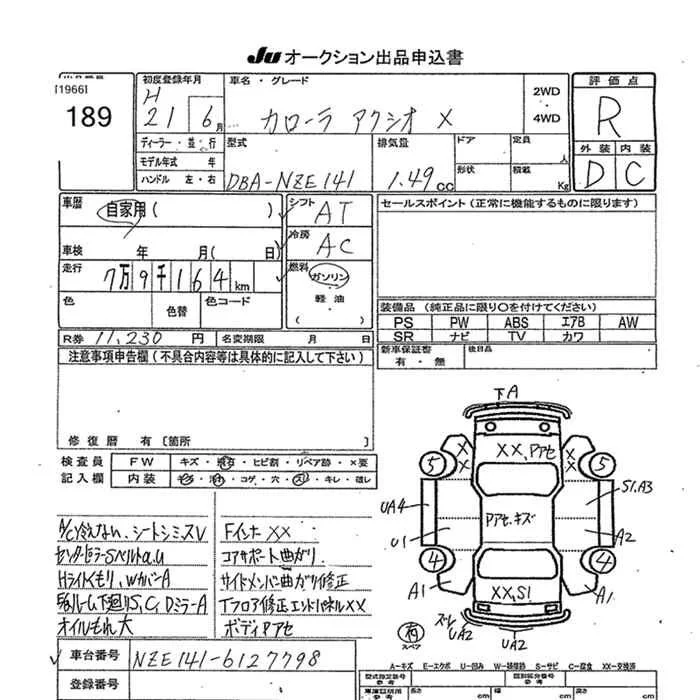 Ju オークション出品申込書
[1966]
189
初度登録年月
H 21 6月
ディーラー・並・行
モデル年式 年
ハンドル 左・右
車名・グレード
カローラ アクシオ X
2WD
4WD
型式
DBA-NZE141
排気量
1.49cc
ドア
形状
定員 人
積載 Kg
評価点
R
外装 内装
D C
車歴
自家用( )
車検 年 月( 日)
走行
7万9千164km
色
色替
色コード
シフト
AT
冷房
AC
燃料
ガソリン
軽油
( )
R券 11,230 円 名変期限 月 日
セールスポイント(正常に機能するものに限ります)
装備品(純正品に限り〇を付けてください)
PS PW ABS エアB AW
SR ナビ TV カワ
新車保証書
有・無
後日品
注意事項申告欄(不具合内容等は具体的に記入して下さい)
修復歴 有〔箇所 〕
検査員
記入欄
FW キズ・飛石・ヒビ割・リペア跡・×要
内装
コゲ・穴・スレ・キレ・雄レ
A/C冷えない、シートシミスレ
センターピラーSベルトa.u
Hライトくもり、WカバーA
Eルーム下廻りS,C,DミラーA
オイルもれ大
Fインナー XX
コアサポート曲がり
サイドメンバー曲ガリ修正
Tフロア修正エンドパネルXX
ボディPアセ
車台番号 NZE141-6127798
登録番号
下A
XX,Pアセ
X
X
X
X
5
5
UA4
S1,A3
Pアセ,キズ
U1
A2
4
4
A1
XX,S1
A1
ズレ
UA2
UA2
有
スペア
A-キズ E-エクボ U-凹み W-補修跡 S-サビ C-腐食 XX-交換済
型式指定番号
参考
類別区分番号
参考
長さ cm
幅 cm
高さ cm